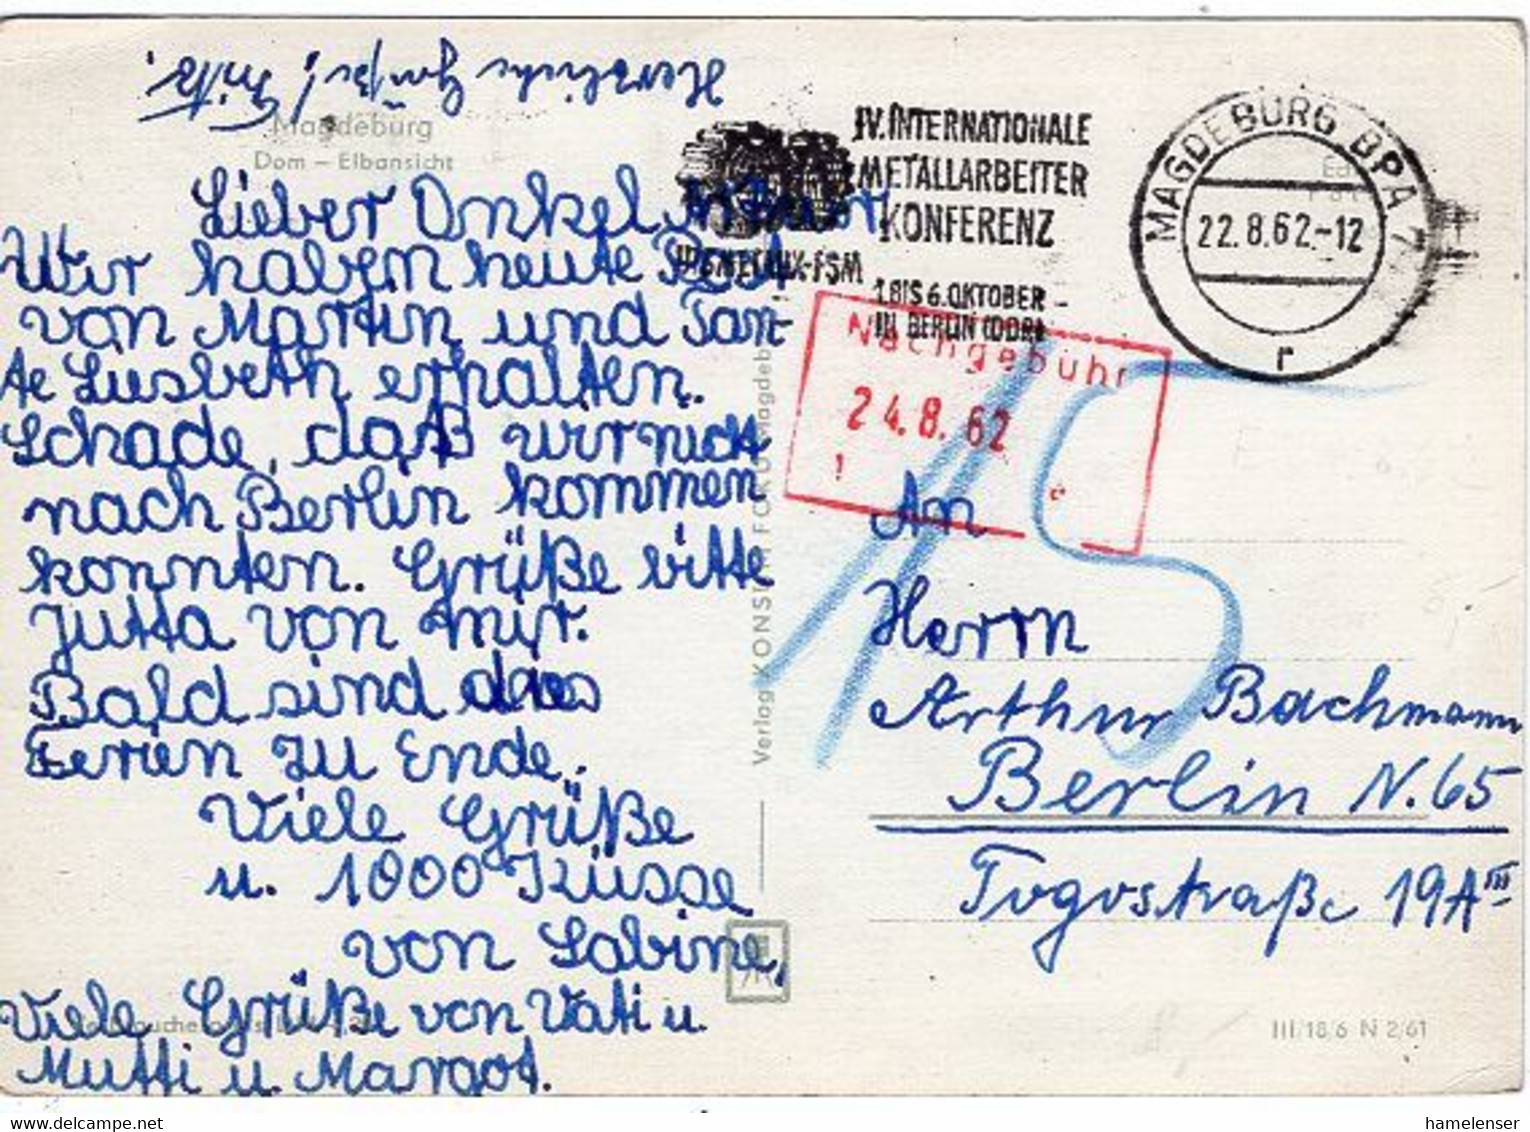 Herzliche Grüße! Fritz.
Magdeburg
Dom – Elbansicht
Lieber Onkel Arthur,
Wir haben heute Post
von Martin und Tan-
te Liesbeth erhalten.
Schade, daß wir nicht
nach Berlin kommen
konnten. Grüße bitte
Jutta von mir.
Bald sind
Ferien zu Ende.
Viele Grüße
u. 1000 Küsse
von Sabine,
Viele Grüße von Vati u.
Mutti u. Margot.
Verlag KONSUM FOKUS Magdeb
IV. INTERNATIONALE
METALLARBEITER
KONFERENZ
1.BIS 6.OKTOBER
IN BERLIN (DDR)
MAGDEBURG BPA 7
22.8.62.-12
r
Nachgebühr
24.8.62
15
An
Herrn
Arthur Bachmann
Berlin N.65
Togostraße 19A III
III/18/6 N 2/61
hamelenser
www.delcampe.net